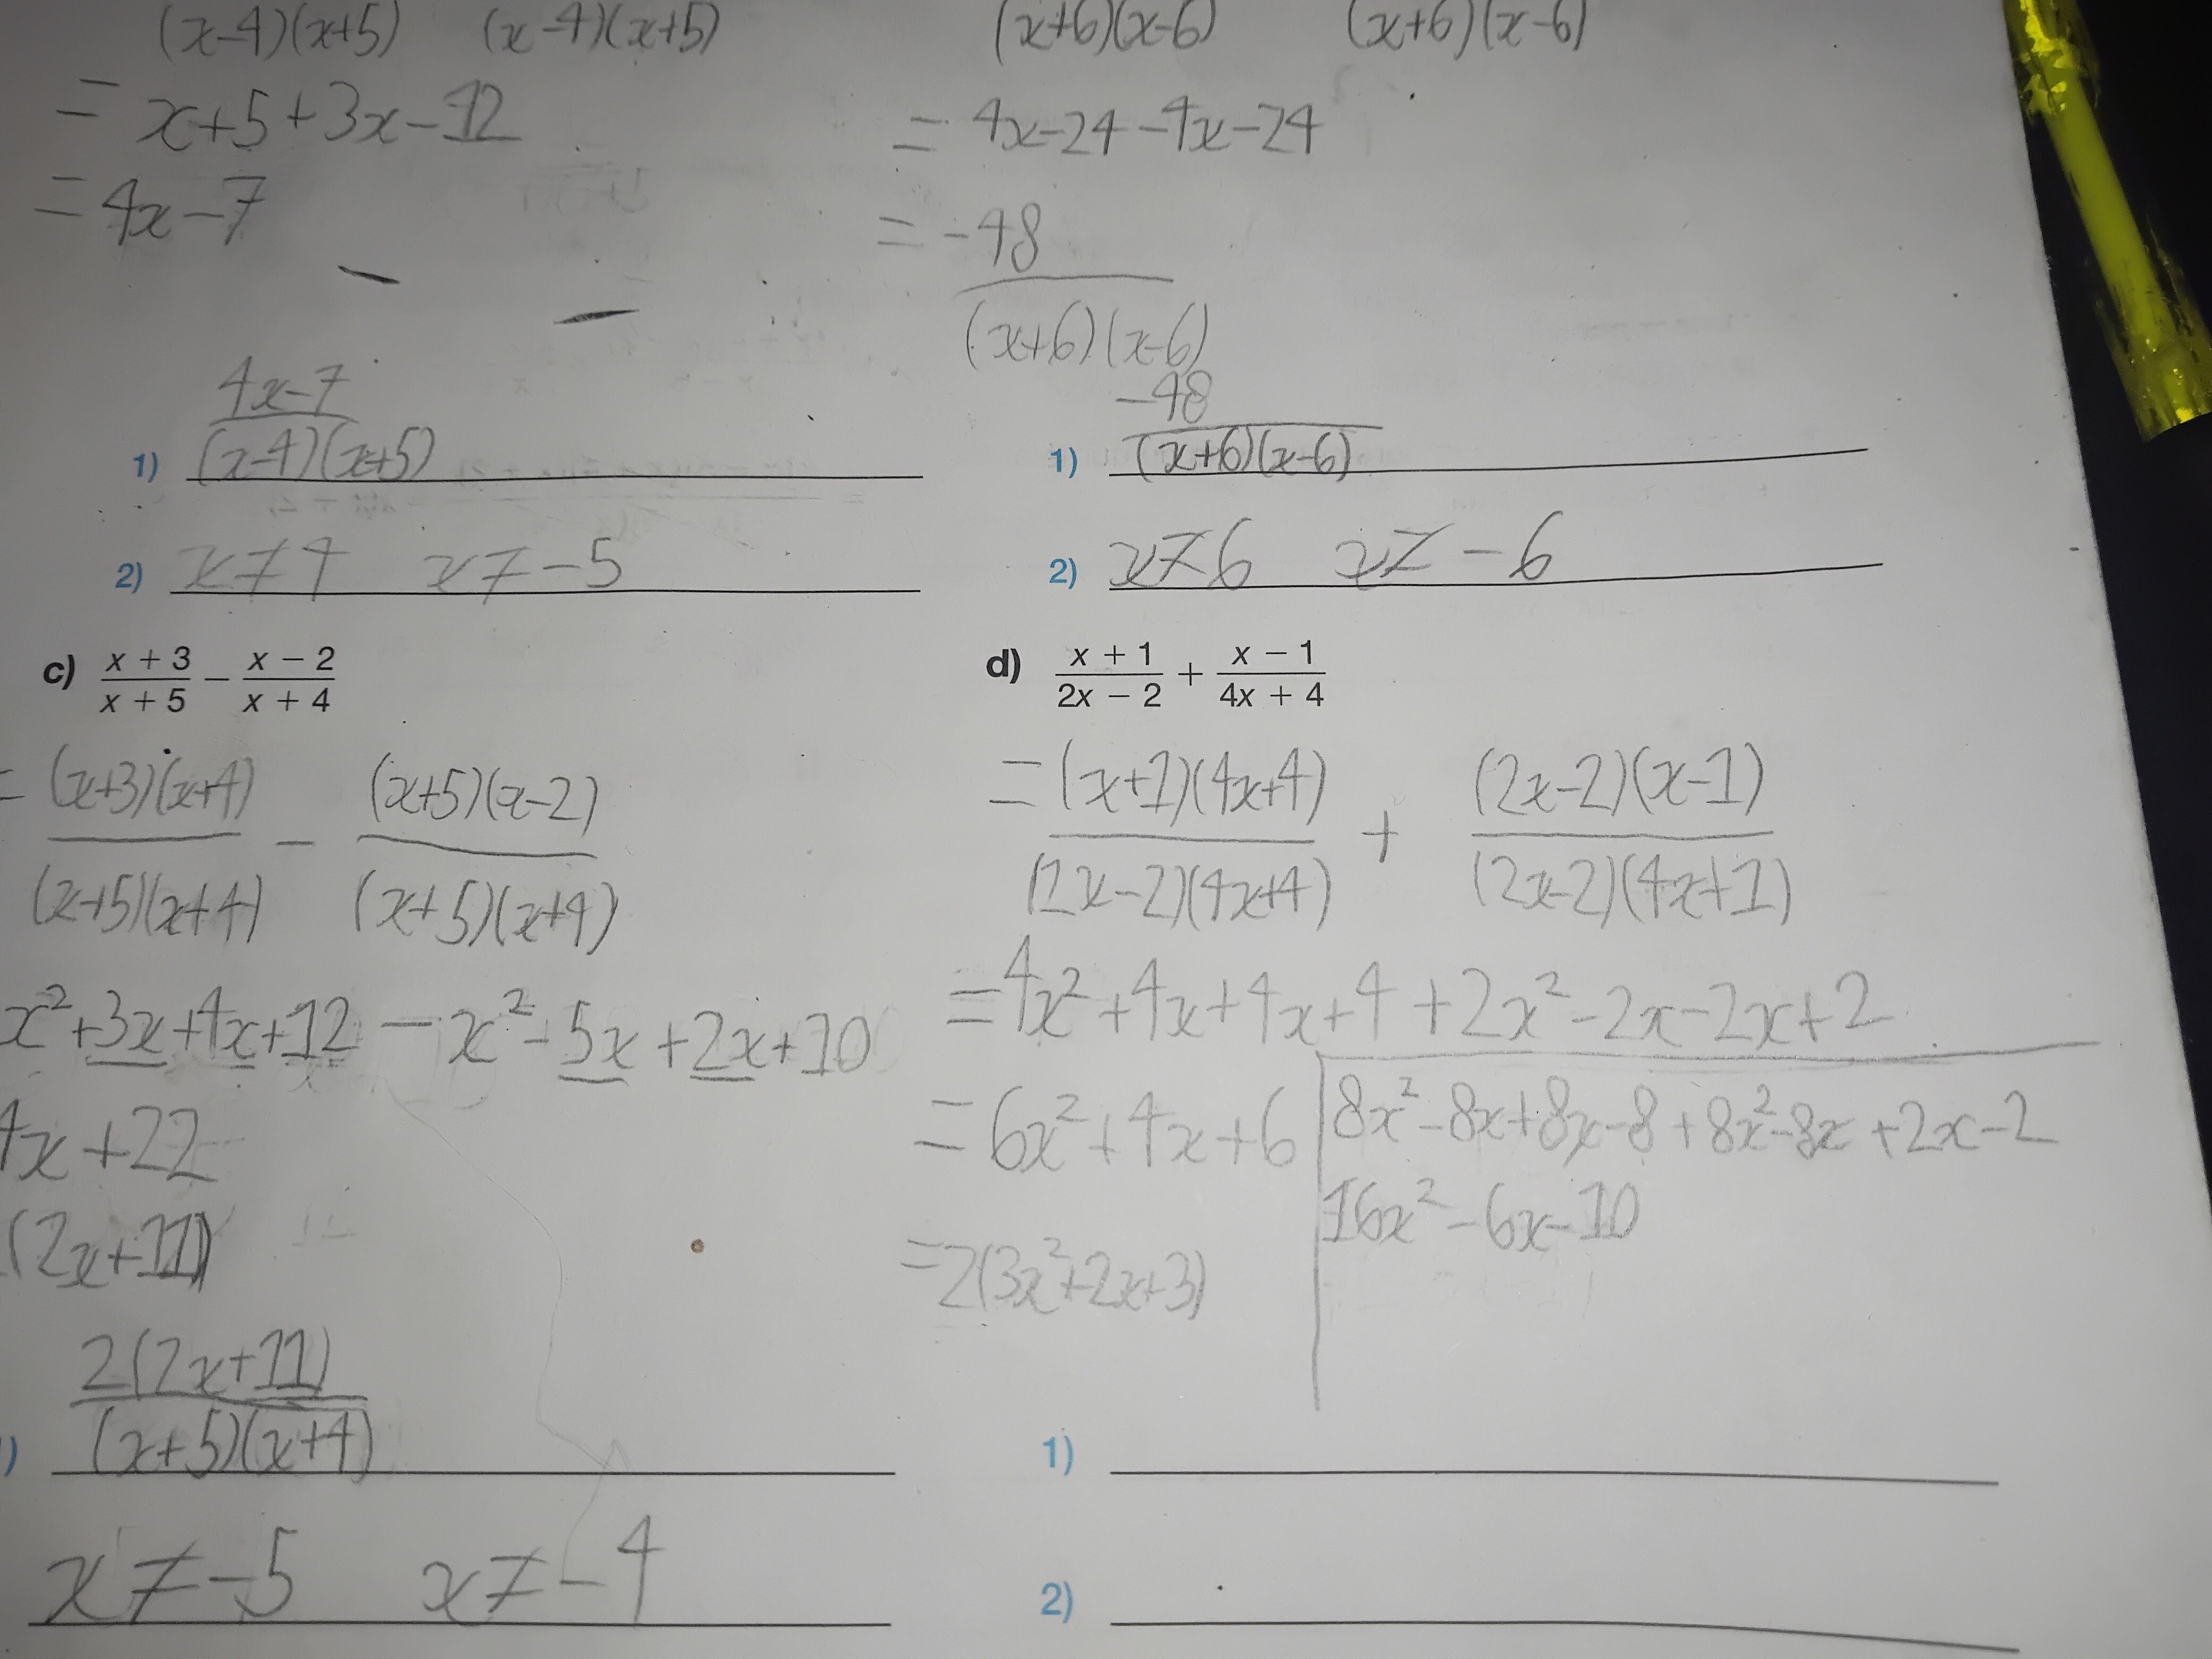 (x-4)(x+5) (x-4)(x+5)
= x+5+3x-12
= 4x-7
4x-7
1) (x-4)(x+5)
2) x≠4 x≠-5
(x+6)(x-6) (x+6)(x-6)
= 4x-24-4x-24
= -48
(x+6)(x-6)
-48
1) (x+6)(x-6)
2) x≠6 x≠-6
c) x + 3 / x + 5 − x − 2 / x + 4
= (x+3)(x+4) / (x+5)(x+4) - (x+5)(x-2) / (x+5)(x+4)
x²+3x+4x+12 - x²-5x+2x+10
4x+22
(2x+11)
2(2x+11)
) (x+5)(x+4)
x≠-5 x≠-4
d) x + 1 / 2x − 2 + x − 1 / 4x + 4
= (x+1)(4x+4) / (2x-2)(4x+4) + (2x-2)(x-1) / (2x-2)(4x+1)
= 4x²+4x+4x+4+2x²-2x-2x+2
= 6x²+4x+6 8x²-8x+8x-8+8x²-8x+2x-2
16x²-6x-10
=2(3x²+2x+3)
1)
2)